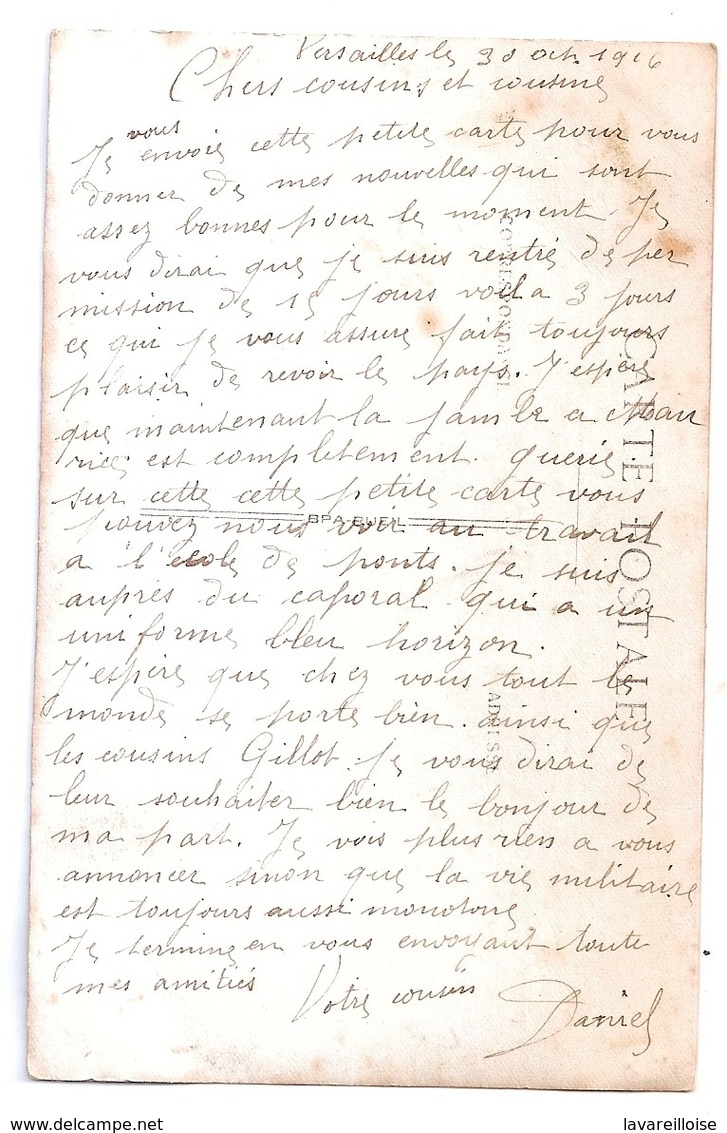 Versailles le 30 oct. 1916
Chers cousins et cousine
Je vous envoie cette petite carte pour vous
donner de mes nouvelles qui sont
assez bonnes pour le moment. Je
vous dirai que je suis rentré de per
mission de 15 jours voila 3 jours
ce qui je vous assure fait toujours
plaisir de revoir le pays. J'espère
que maintenant la jambe a Mau
rice est completement guerie
sur cette cette petite carte vous
pouvez nous voir au travail
a l'école de ponts. je suis
aupres du caporal qui a un
uniforme bleu horizon.
J'espère que chez vous tout le
monde se porte bien. ainsi que
les cousins Gillot. je vous dirai de
leur souhaiter bien le bonjour de
ma part. Je vois plus rien a vous
annoncer sinon que la vie militaire
est toujours aussi monotone
Je termine en vous envoyant toute
mes amitiés
Votre cousin
Daniel
CARTE POSTALE
CORRESPONDANCE
ADRESSE
delcampe.net
lavareilloise